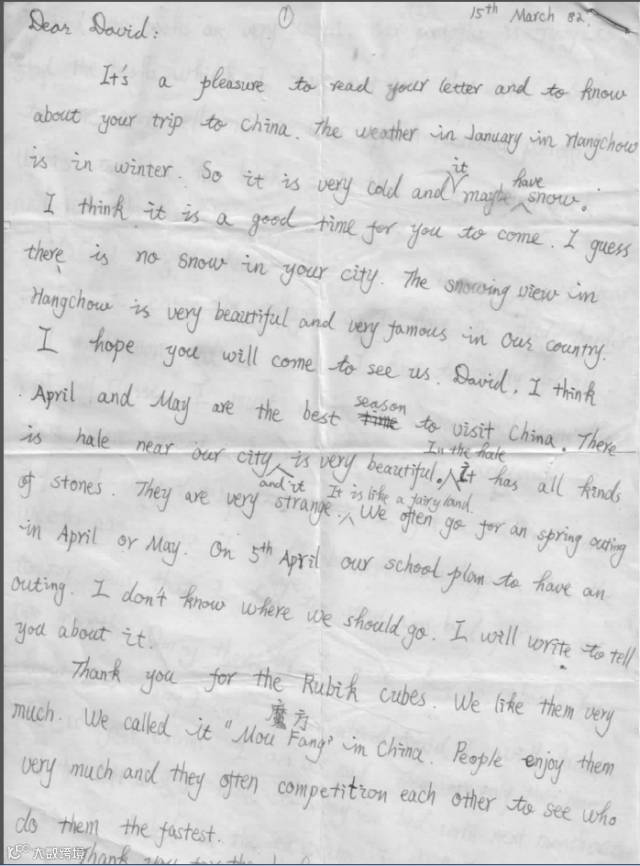 ①
15th March 82.
Dear David:
It's a pleasure to read your letter and to know
about your trip to China. The weather in January in Hangchow
is in winter. So it is very cold and it maybe have snow.
I think it is a good time for you to come. I guess
there is no snow in your city. The snowing view in
Hangchow is very beautiful and very famous in our country.
I hope you will come to see us. David, I think
April and May are the best time season to visit China. There
is hale near our city and it is very beautiful. In the hale It has all kinds
of stones. They are very strange. It is like a fairy land. We often go for an spring outing
in April or May. On 5th April our school plan to have an
outing. I don't know where we should go. I will write to tell
you about it.
Thank you for the Rubik cubes. We like them very
much. We called it "Mou Fang" 魔方 in China. People enjoy them
very much and they often competition each other to see who
do them the fastest.
Thank you for the
大数跨境